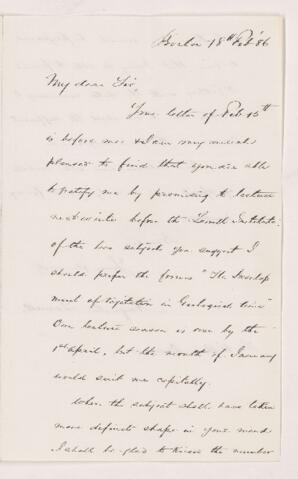 Boston 18th Feb '86
My dear Sir,
Your letter of Feb 15th
is before me & I am very much
pleased to find that you are able
to gratify me by promising to lecture
next winter before the Lowell Institute.
Of the two subjects you suggest I
should prefer the former "The Develop
ment of Vegetation in Geological time"
Our lecture season is over by the
1st April, but the month of January
would suit me capitally.
When the subject shall have taken
more definite shape in your mind
I shall be glad to know the number